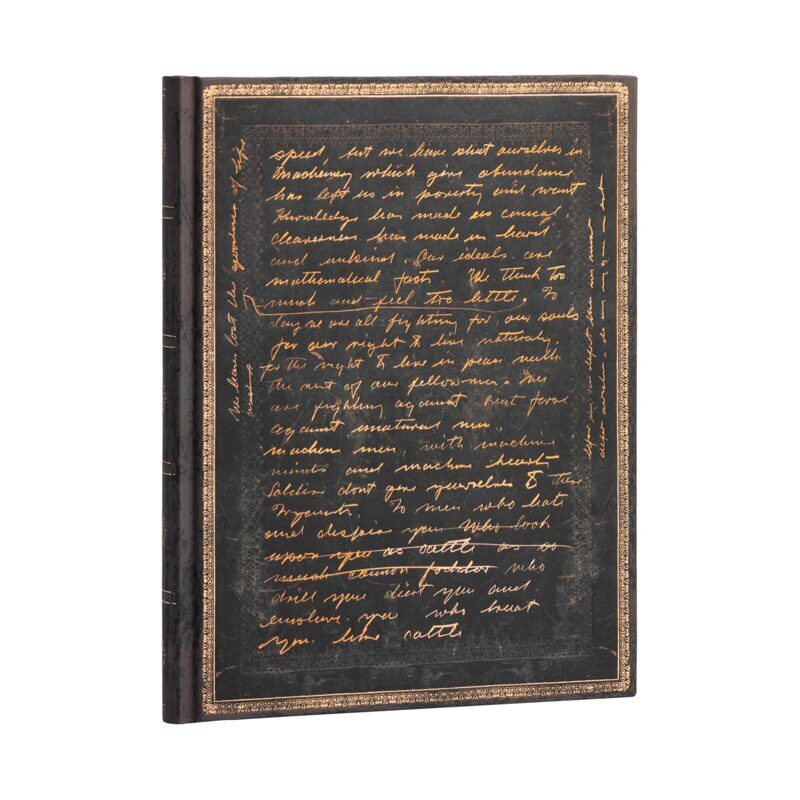 speed, but we have shut ourselves in
Machenery which give abundance
has left us in poverty and want
Knowledge has made us
cleaverness has made us hard
and unkind. Our ideals are
mathematical facts. We think too
much and feel too little. To
day we are all fighting for our souls
for our right to live naturaly,
for the right to live in peace with
the rest of our fellow men.
are fighting against brut force
against unatural men.
machen men, with machine
minds and machine hearts
Soldiers dont give yourselves to these
To men who hate
and despise you who look
upon you as cattle as so
much cannon fodder who
drill you diet you and
enslave you who treat
you like cattle
We have lost the goodness of life